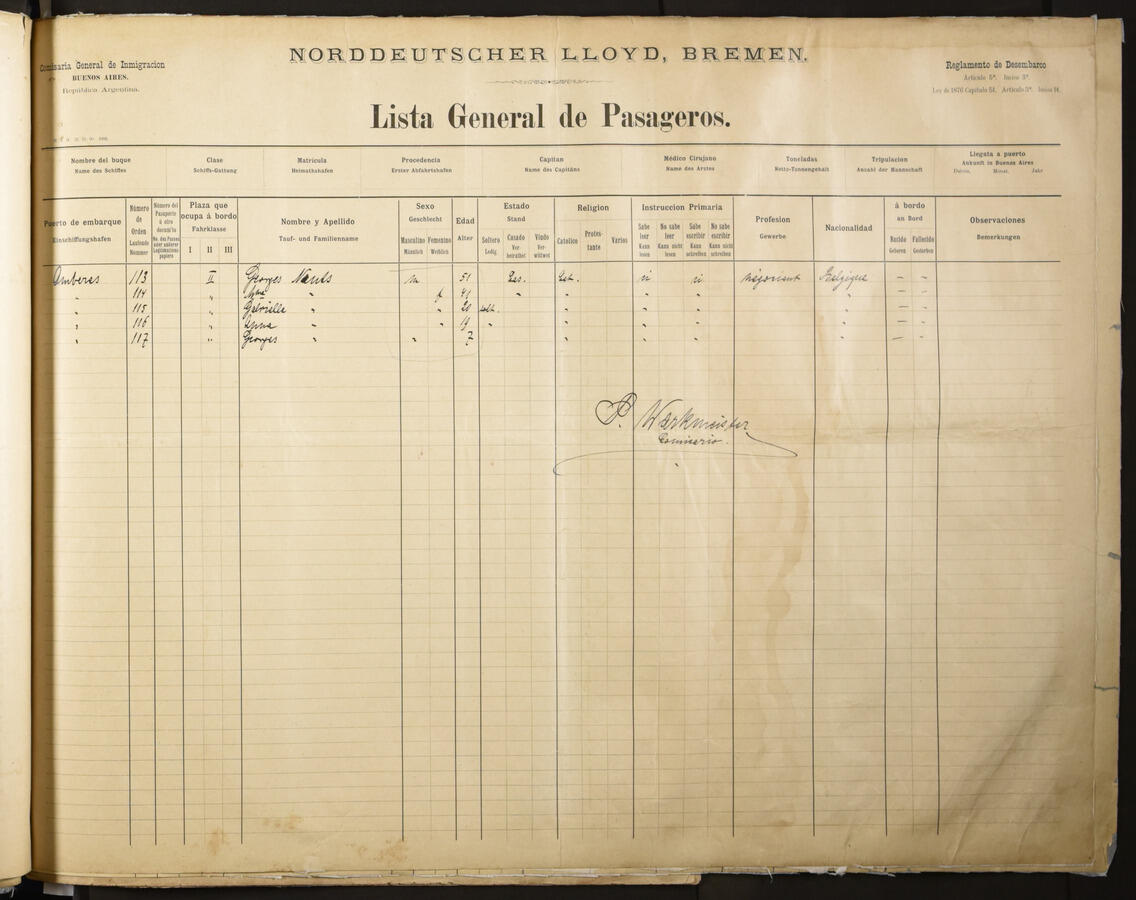 NORDDEUTSCHER LLOYD, BREMEN.
Comisaria General de Inmigracion
BUENOS AIRES.
República Argentina.
Reglamento de Desembarco
Articulo 5º. Inciso 3º.
Ley de 1876 Capitulo 51, Articulo 5º. Inciso 14.
Lista General de Pasageros.
Nombre del buque Clase Matricula Procedencia Capitan Médico Cirujano Toneladas Tripulacion Llegata a puerto
Name des Schiffes Schiffs-Gattung Heimathshafen Erster Abfahrtshafen Name des Capitäns Name des Arztes Netto-Tonnengehalt Anzahl der Mannschaft Ankunft in Buenos Aires
Datum. Monat. Jahr
Puerto de embarque
Einschiffungshafen
Número de Orden
Laufende Nummer
Número del Pasaporte ó otro documento
No. des Passes oder anderer Legitimationspapiere
Plaza que ocupa á bordo
Fahrklasse
I II III
Nombre y Apellido
Tauf- und Familienname
Sexo
Geschlecht
Masculino Femenino
Männlich Weiblich
Edad
Alter
Estado
Stand
Soltero Casado Viudo
Ledig Verheirathet Verwittwet
Religion
Catolico Protestante Varios
Instruccion Primaria
Sabe leer No sabe leer Sabe escribir No sabe escribir
Kann lesen Kann nicht lesen Kann schreiben Kann nicht schreiben
Profesion
Gewerbe
Nacionalidad
á bordo
an Bord
Nacido Fallecido
Geboren Gestorben
Observaciones
Bemerkungen
Amberes 113 II Georges m 51 Cas. Cat. Belgique – –
" 114 " " f 41 " " " " " – –
" 115 " Gabrielle " " 20 solt. " " " " – –
" 116 " Anna " " 19 " " " " " – –
" 117 " Georges " " 7 " " " " – –
P. Warkmeister
Comisario.